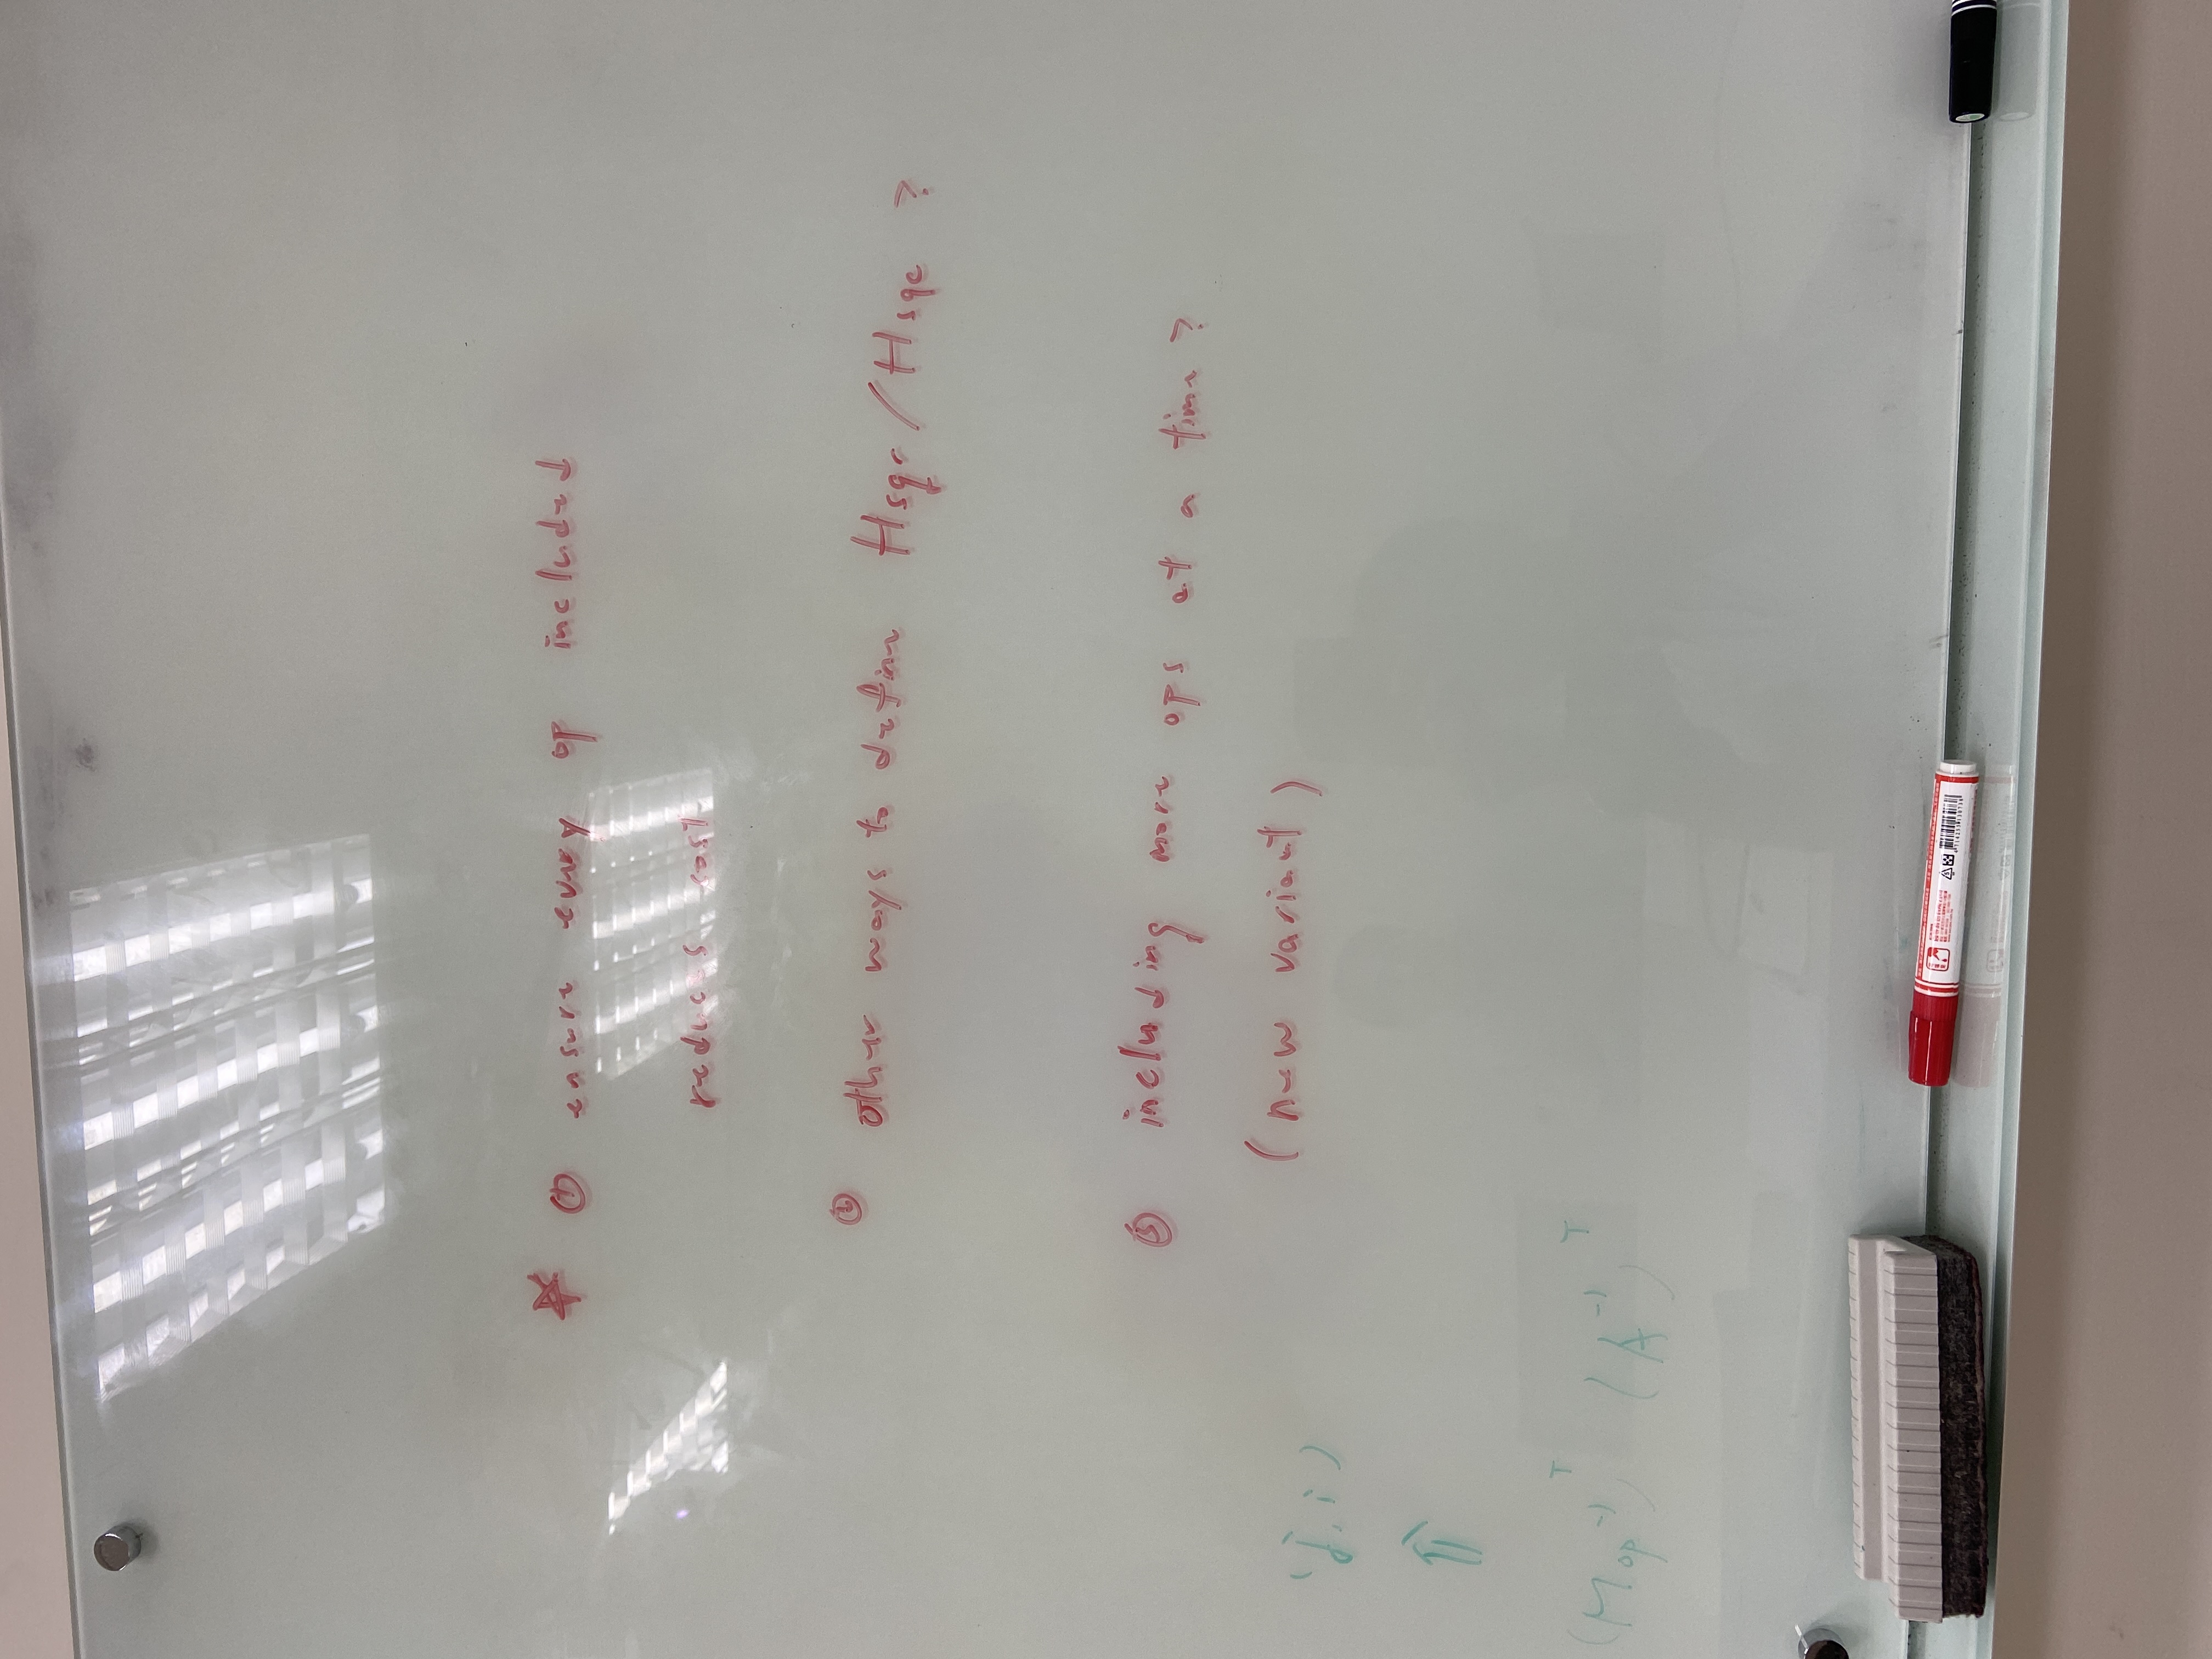 ☆ ① ensure every op included
reduces cost
② other ways to define Hsqr / Hsqc ?
③ including more ops at a time ?
(new variant)
(j, i)
⇑
(Mop⁻¹)ᵀ (A⁻¹)ᵀ